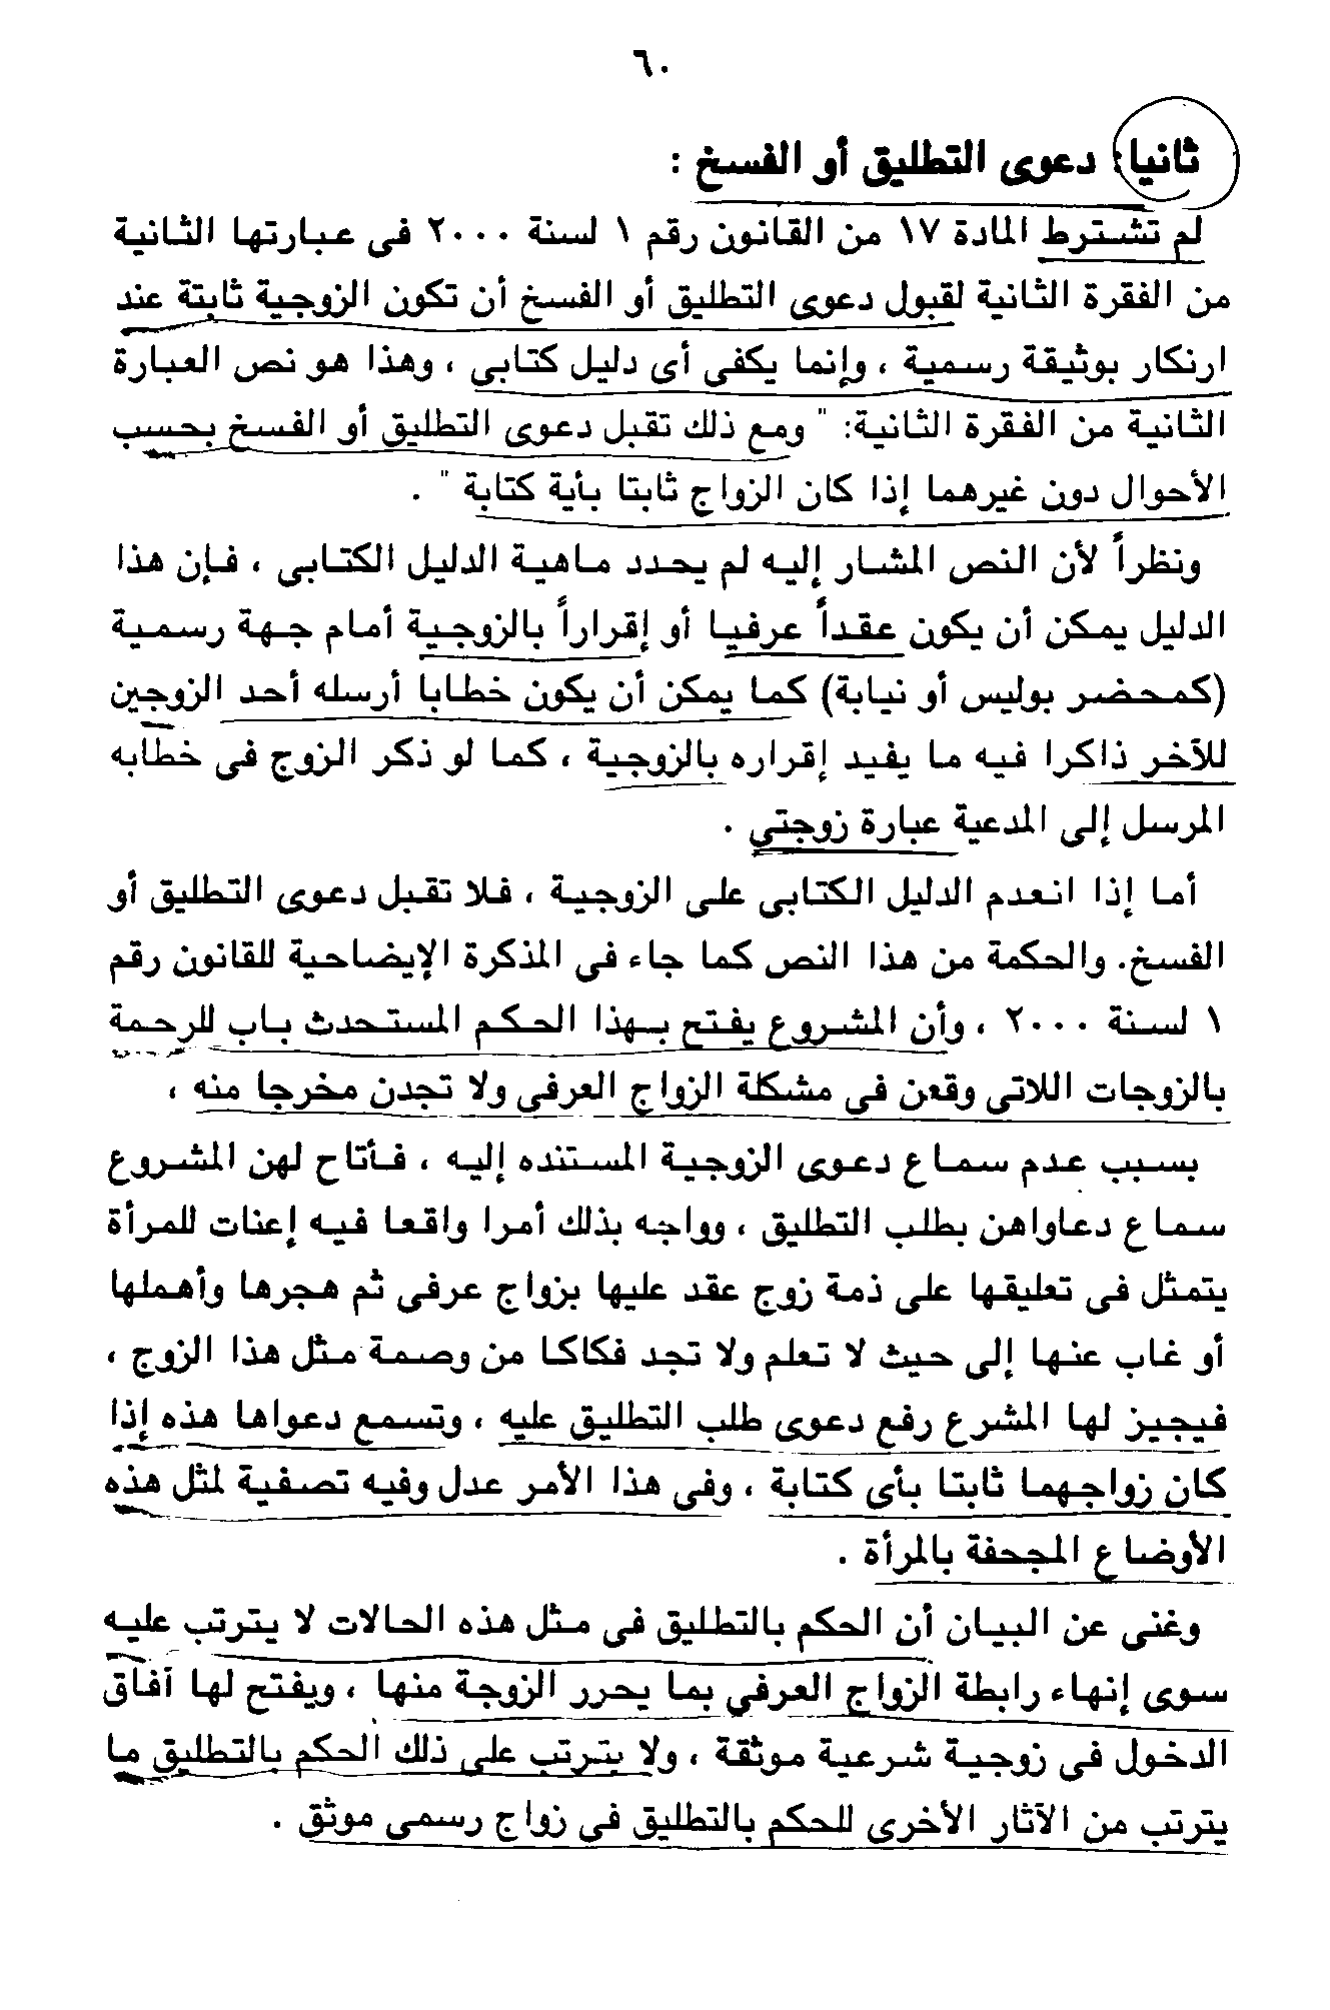 ٦٠
ثانيا: دعوى التطليق أو الفسخ :
لم تشترط المادة ١٧ من القانون رقم ١ لسنة ٢٠٠٠ فى عبارتها الثانية
من الفقرة الثانية لقبول دعوى التطليق أو الفسخ أن تكون الزوجية ثابتة عند
ارنكار بوثيقة رسمية ، وإنما يكفى أى دليل كتابى ، وهذا هو نص العبارة
الثانية من الفقرة الثانية: " ومع ذلك تقبل دعوى التطليق أو الفسخ بحسب
الأحوال دون غيرهما إذا كان الزواج ثابتا بأية كتابة " .
ونظراً لأن النص المشار إليه لم يحدد ماهية الدليل الكتابى ، فإن هذا
الدليل يمكن أن يكون عقداً عرفيا أو إقراراً بالزوجية أمام جهة رسمية
(كمحضر بوليس أو نيابة) كما يمكن أن يكون خطابا أرسله أحد الزوجين
للآخر ذاكرا فيه ما يفيد إقراره بالزوجية ، كما لو ذكر الزوج فى خطابه
المرسل إلى المدعية عبارة زوجتي .
أما إذا انعدم الدليل الكتابى على الزوجية ، فلا تقبل دعوى التطليق أو
الفسخ. والحكمة من هذا النص كما جاء فى المذكرة الإيضاحية للقانون رقم
١ لسنة ٢٠٠٠ ، وأن المشروع يفتح بهذا الحكم المستحدث باب للرحمة
بالزوجات اللاتى وقعن فى مشكلة الزواج العرفى ولا تجدن مخرجا منه ،
بسبب عدم سماع دعوى الزوجية المستنده إليه ، فأتاح لهن المشروع
سماع دعاواهن بطلب التطليق ، وواجه بذلك أمرا واقعا فيه إعنات للمرأة
يتمثل فى تعليقها على ذمة زوج عقد عليها بزواج عرفى ثم هجرها وأهملها
أو غاب عنها إلى حيث لا تعلم ولا تجد فكاكا من وصمة مثل هذا الزوج ،
فيجيز لها المشرع رفع دعوى طلب التطليق عليه ، وتسمع دعواها هذه إذا
كان زواجهما ثابتا بأى كتابة ، وفى هذا الأمر عدل وفيه تصفية لمثل هذه
الأوضاع المجحفة بالمرأة .
وغنى عن البيان أن الحكم بالتطليق فى مثل هذه الحالات لا يترتب عليه
سوى إنهاء رابطة الزواج العرفي بما يحرر الزوجة منها ، ويفتح لها آفاق
الدخول فى زوجية شرعية موثقة ، ولا يترتب على ذلك الحكم بالتطليق ما
يترتب من الآثار الأخرى للحكم بالتطليق فى زواج رسمى موثق .